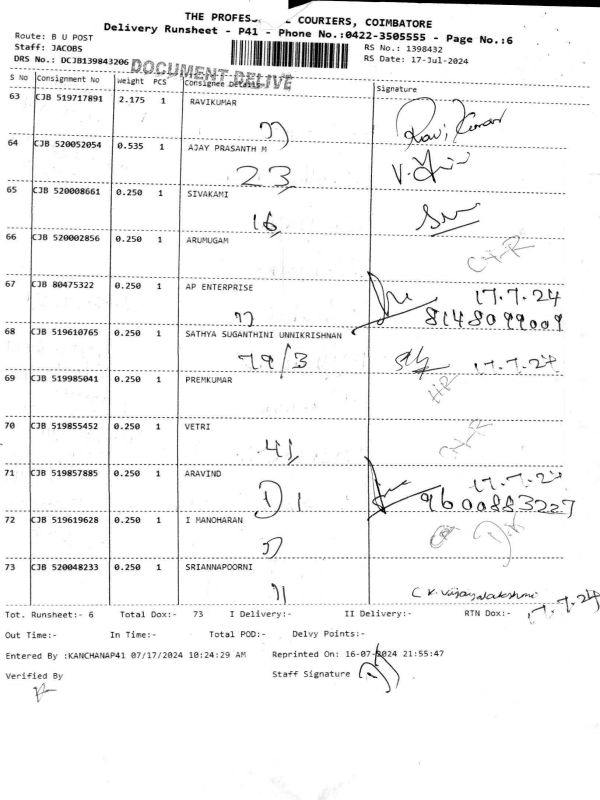 THE PROFESS   L COURIERS, COIMBATORE
Delivery Runsheet - P41 - Phone No.:0422-3505555 - Page No.:6
Route: B U POST
Staff: JACOBS
RS No.: 1398432
DRS No.: DCJB139843206
RS Date: 17-Jul-2024
DOCUMENT DELIVE
S No Consignment No Weight PCS Consignee Details Signature
63 CJB 519717891 2.175 1 RAVIKUMAR
Ravi Kumar
64 CJB 520052054 0.535 1 AJAY PRASANTH M
23
65 CJB 520008661 0.250 1 SIVAKAMI
16
66 CJB 520002856 0.250 1 ARUMUGAM
67 CJB 80475322 0.250 1 AP ENTERPRISE
17.7.24
8148099009
68 CJB 519610765 0.250 1 SATHYA SUGANTHINI UNNIKRISHNAN
79/3 17.7.24
69 CJB 519985041 0.250 1 PREMKUMAR
70 CJB 519855452 0.250 1 VETRI
41
71 CJB 519857885 0.250 1 ARAVIND
D1 17.7.24
9600883227
72 CJB 519619628 0.250 1 I MANOHARAN
73 CJB 520048233 0.250 1 SRIANNAPOORNI
C K. Vijayalakshmi
17.7.24
Tot. Runsheet:- 6 Total Dox:- 73 I Delivery:- II Delivery:- RTN Dox:-
Out Time:- In Time:- Total POD:- Delvy Points:-
Entered By :KANCHANAP41 07/17/2024 10:24:29 AM Reprinted On: 16-07-2024 21:55:47
Verified By Staff Signature